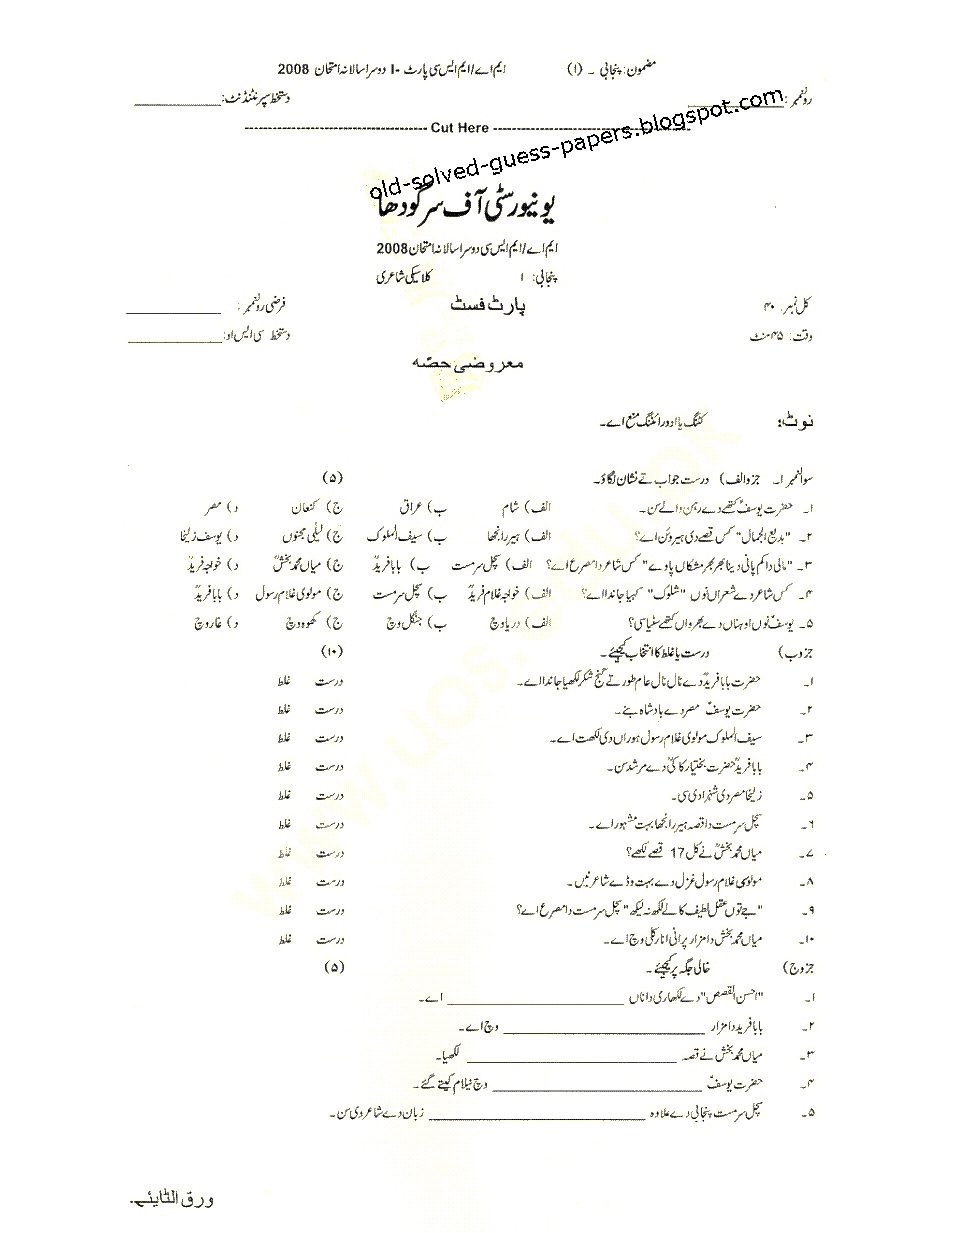 مضمون: پنجابی ۔ (I) ایم اے/ایم ایس سی پارٹ -I دوسرا سالانہ امتحان 2008
رولنمبر: ____________ دستخط سپرنٹنڈنٹ: ____________
------------------------------------ Cut Here ------------------------------------
old-solved-guess-papers.blogspot.com
یونیورسٹی آف سرگودھا
ایم اے/ایم ایس سی دوسرا سالانہ امتحان 2008
پنجابی: I کلاسیکی شاعری
کل نمبر: ۴۰ پارٹ فسٹ فرضی رولنمبر: ____________
وقت: ۴۵ منٹ دستخط سی ایس او: ____________
معروضی حصّہ
نوٹ: کٹنگ یا اوور رائٹنگ منع اے۔
سوالنمبر ۱۔ جزو الف) درست جواب تے نشان لگاؤ۔ (۵)
۱۔ حضرت یوسفؑ کتھے دے رہن والے سن۔ الف) شام ب) عراق ج) کنعان د) مصر
۲۔ "بدیع الجمال" کس قصے دی ہیروئن اے؟ الف) ہیر رانجھا ب) سیف الملوک ج) لیلیٰ مجنوں د) یوسف زلیخا
۳۔ "مالی دا کم پانی دینا بھر بھر مشکاں پاوے" کس شاعر دا مصرع اے؟ الف) سچل سرمست ب) بابا فریدؒ ج) میاں محمد بخشؒ د) خواجہ فریدؒ
۴۔ کس شاعر دے شعراں نوں "شلوک" کہیا جاندا اے؟ الف) خواجہ غلام فریدؒ ب) سچل سرمست ج) مولوی غلام رسول د) بابا فریدؒ
۵۔ یوسفؑ نوں اوہناں دے بھرواں کتھے سٹیا سی؟ الف) دریا وچ ب) جنگل وچ ج) کھوہ وچ د) غار وچ
جزو ب) درست یا غلط کا انتخاب کیجئے۔ (۱۰)
۱۔ حضرت بابا فریدؒ دے نال نال عام طور تے گنج شکر لکھیا جاندا اے۔ درست غلط
۲۔ حضرت یوسفؑ مصر دے بادشاہ بنے۔ درست غلط
۳۔ سیف الملوک مولوی غلام رسول ہوراں دی لکھت اے۔ درست غلط
۴۔ بابا فریدؒ حضرت بختیار کاکیؒ دے مرشد سن۔ درست غلط
۵۔ زلیخا مصر دی شہزادی سی۔ درست غلط
۶۔ سچل سرمست دا قصہ ہیر رانجھا بہت مشہور اے۔ درست غلط
۷۔ میاں محمد بخشؒ نے کل 17 قصے لکھے؟ درست غلط
۸۔ مولوی غلام رسول غزل دے بہت وڈے شاعر نیں۔ درست غلط
۹۔ "جے توں عقل لطیف کالے لکھ نہ لیکھ" سچل سرمست دا مصرع اے؟ درست غلط
۱۰۔ میاں محمد بخش دا مزار پرانی انار کلی وچ اے۔ درست غلط
جزو ج) خالی جگہ پر کیجئے۔ (۵)
۱۔ "احسن القصص" دے لکھاری دا ناں ____________ اے۔
۲۔ بابا فرید دا مزار ____________ وچ اے۔
۳۔ میاں محمد بخش نے قصہ ____________ لکھیا۔
۴۔ حضرت یوسفؑ ____________ وچ نیلام کیتے گئے۔
۵۔ سچل سرمست پنجابی دے علاوہ ____________ زبان دے شاعر وی سن۔
ورق الٹایئے۔